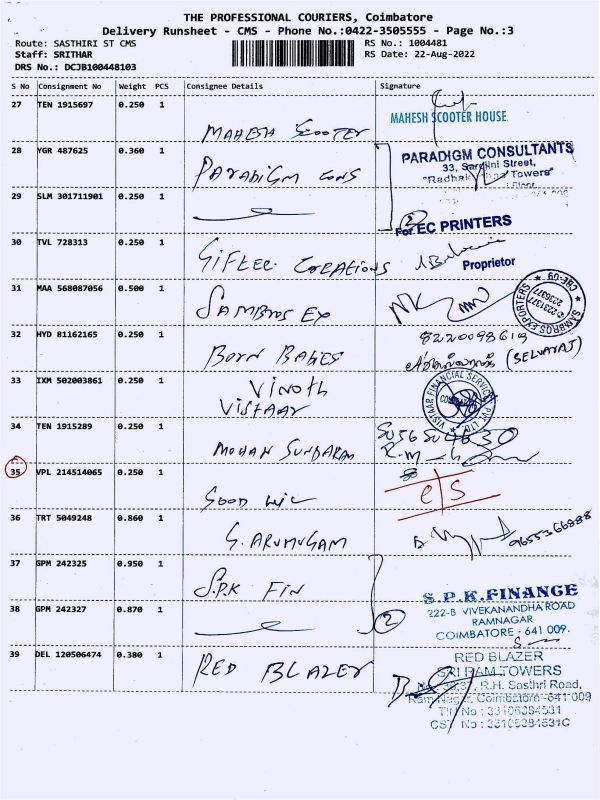 THE PROFESSIONAL COURIERS, Coimbatore
Delivery Runsheet - CMS - Phone No.:0422-3505555 - Page No.:3
Route: SASTHIRI ST CMS
RS No.: 1004481
Staff: SRITHAR
RS Date: 22-Aug-2022
DRS No.: DCJB100448103
S No Consignment No Weight PCS Consignee Details Signature
27 TEN 1915697 0.250 1
MAHESH SCOOTER
MAHESH SCOOTER HOUSE
28 YGR 487625 0.360 1
PARADIGM CONS
PARADIGM CONSULTANTS
33, Sarojini Street,
"Radhakrishna Towers"
29 SLM 301711901 0.250 1
2
For EC PRINTERS
30 TVL 728313 0.250 1
GIFTEC CREATIONS
Proprietor
31 MAA 568087056 0.500 1
SAMBROS EX
SAMBROS EXPORTERS
CBE-09
2231377
2236377
32 HYD 81162165 0.250 1
BORN BABIES
8220098619
(SELVARAJ)
33 IXM 502003861 0.250 1
VINOTH
VISTAAR
VISTAAR FINANCIAL SERVICES PVT LTD.
34 TEN 1915289 0.250 1
MOHAN SUNDARAM
35 VPL 214514065 0.250 1
GOOD WIL
C/S
36 TRT 5049248 0.860 1
G. ARUMUGAM
9655366888
37 GPM 242325 0.950 1
S.P.K FIN
S.P.K.FINANCE
222-B VIVEKANANDHA ROAD
RAMNAGAR
COIMBATORE - 641 009.
38 GPM 242327 0.870 1
2
39 DEL 120506474 0.380 1
RED BLAZER
RED BLAZER
SRI RAM TOWERS
R.H. Sasthri Road,
Ram Nagar, Coimbatore-641 009
TIN No : 33106384531